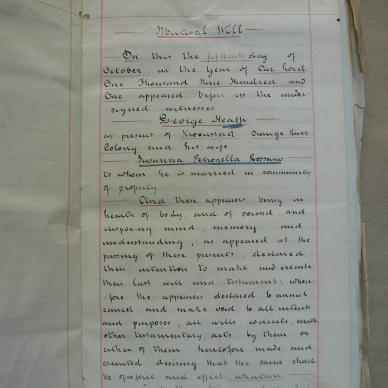 Mutual Will
On this the fifteenth day of
October in the Year of Our Lord
One Thousand Nine Hundred and
One appeared before us the under
signed witnesses
George Heath
at present of Kroonstad Orange River
Colony and his wife
Susanna Petronella Rossouw
to whom he is married in community
of property
And these appearers being in
health of body, and of sound and
disposing mind, memory and
understanding, as appeared at the
passing of these presents, declared
their intention to make and execute
their last will and testament, where-
fore the appearers declared to annul
cancel and make void to all intents
and purposes, all wills, codicils and
other testamentary acts, by them or
either of them heretofore made and
executed desiring that the same shall
be of no force and effect whatever